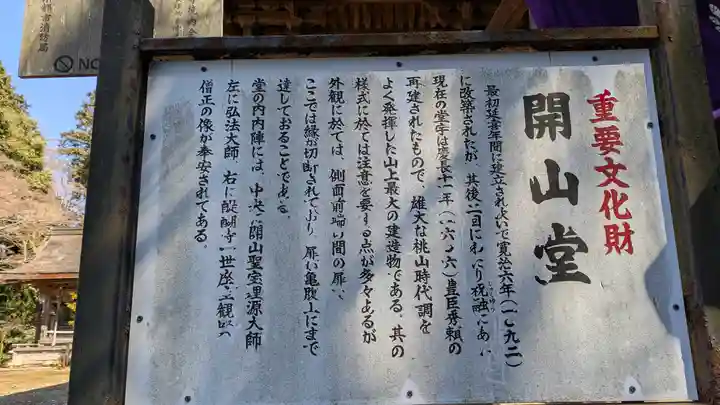 重要文化財
開山堂
最初延喜年間に建立されついで寛治六年(一〇九二)
に改築されたが、其後二回にわたり祝融にあい
しゅくゆう
現在の堂宇は慶長十一年(一六〇六)豊臣秀頼の
再建されたもので、雄大な桃山時代調を
よく発揮した山上最大の建造物である、其の
様式に於ては注意を要する点が多々あるが
外観に於ては、側面前端の間の扉、
ここでは縁が切断されており、扉は亀腹上にまで
達しておることである。
堂の内内陣には、中央に開山聖宝理源大師
左に弘法大師、右に醍醐寺一世座主観賢
僧正の像が奉安されてある。
市消防局
NO